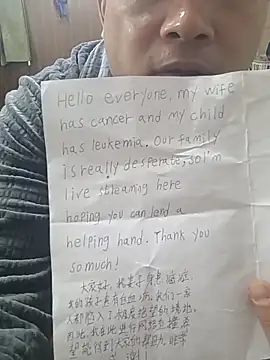 Hello everyone, my wife
has cancer and my child
has leukemia. Our family
is really desperate, so I'm
live streaming here
hoping you can lend a
helping hand. Thank you
so much!
大家好，我妻子身患癌症
我的孩子患有白血病。我们一家
人都陷入了极度绝望的境地。
因此，我在此进行网络直播，希
望能得到大家的援助。非常
感谢！